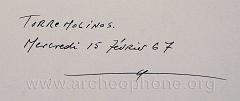 TORREMOLINOS.
Mercredi 15 Février 67
www.archeophone.org